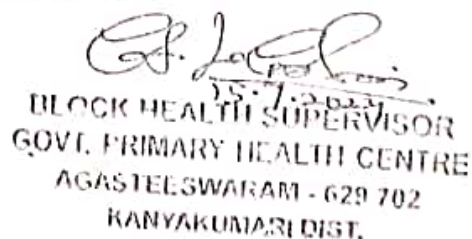 BLOCK HEALTH SUPERVISOR
GOVT. PRIMARY HEALTH CENTRE
AGASTEESWARAM - 629 702
KANYAKUMARI DIST.